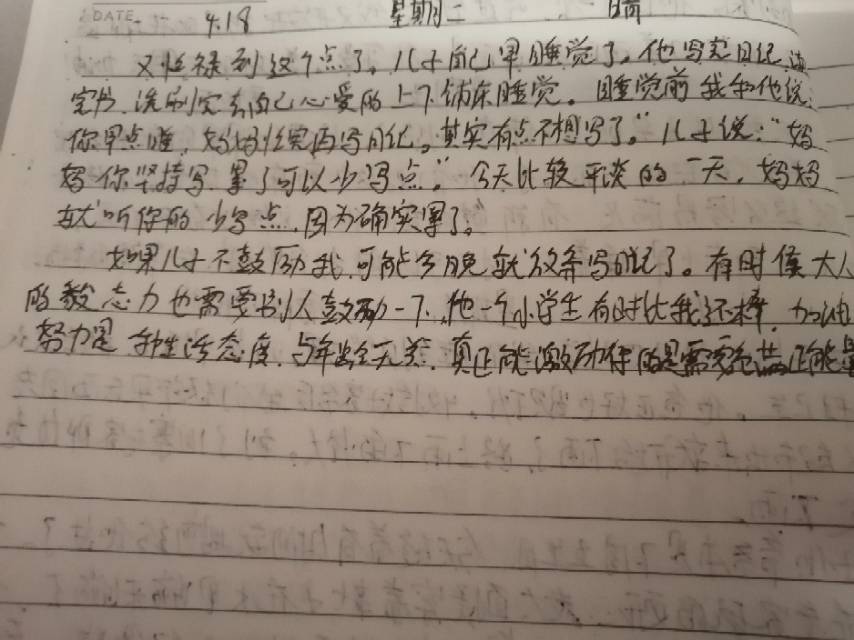 DATE 4.18 星期二 晴
又忙碌到这个点了,儿子自己早睡觉了。他写完日记,读
完书,洗刷完去自己心爱的上下铺床睡觉。睡觉前我和他说
你早点睡,妈妈忙完再写日记。其实有点不想写了。"儿子说:"妈
妈你坚持写,累了可以少写点。"今天比较平淡的一天,妈妈
就听你的少写点,因为确实累了。"
如果儿子不鼓励我,可能今晚就放弃写日记了。有时候大人
的毅志力也需要别人鼓励一下,他一个小学生有时比我还棒,加油
努力是一种生活态度,与年龄无关,真正能激励你的是需要充满正能量